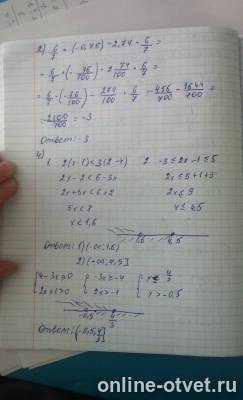 2) 6/7 * (-0,76) - 2,74 * 6/7 =
= 6/7 * (- 76/100) - 2 74/100 * 6/7 =
= 6/7 * (- 76/100) - 274/100 * 6/7 = - 456/700 - 1644/700 =
= - 2100/700 = -3
Ответ: -3
4)
1. 2(x-1) < 3(2-x)
2x - 2 < 6 - 3x
2x + 3x < 6 + 2
5x < 8
x < 1,6
2. -3 ≤ 2x - 1 ≤ 5
2x ≤ 5 + 1 + 3
2x ≤ 9
x ≤ 4,5
1,6 4,5
Ответ: 1) (-∞; 1,6)
2) (-∞; 4,5]
{4 - 3x ≥ 0 {-3x ≥ -4 {x ≤ 4/3
{2x + 1 > 0 {2x > -1 {x > -0,5
-0,5 4/3
Ответ: (-0,5; 4/3]
online-otvet.ru